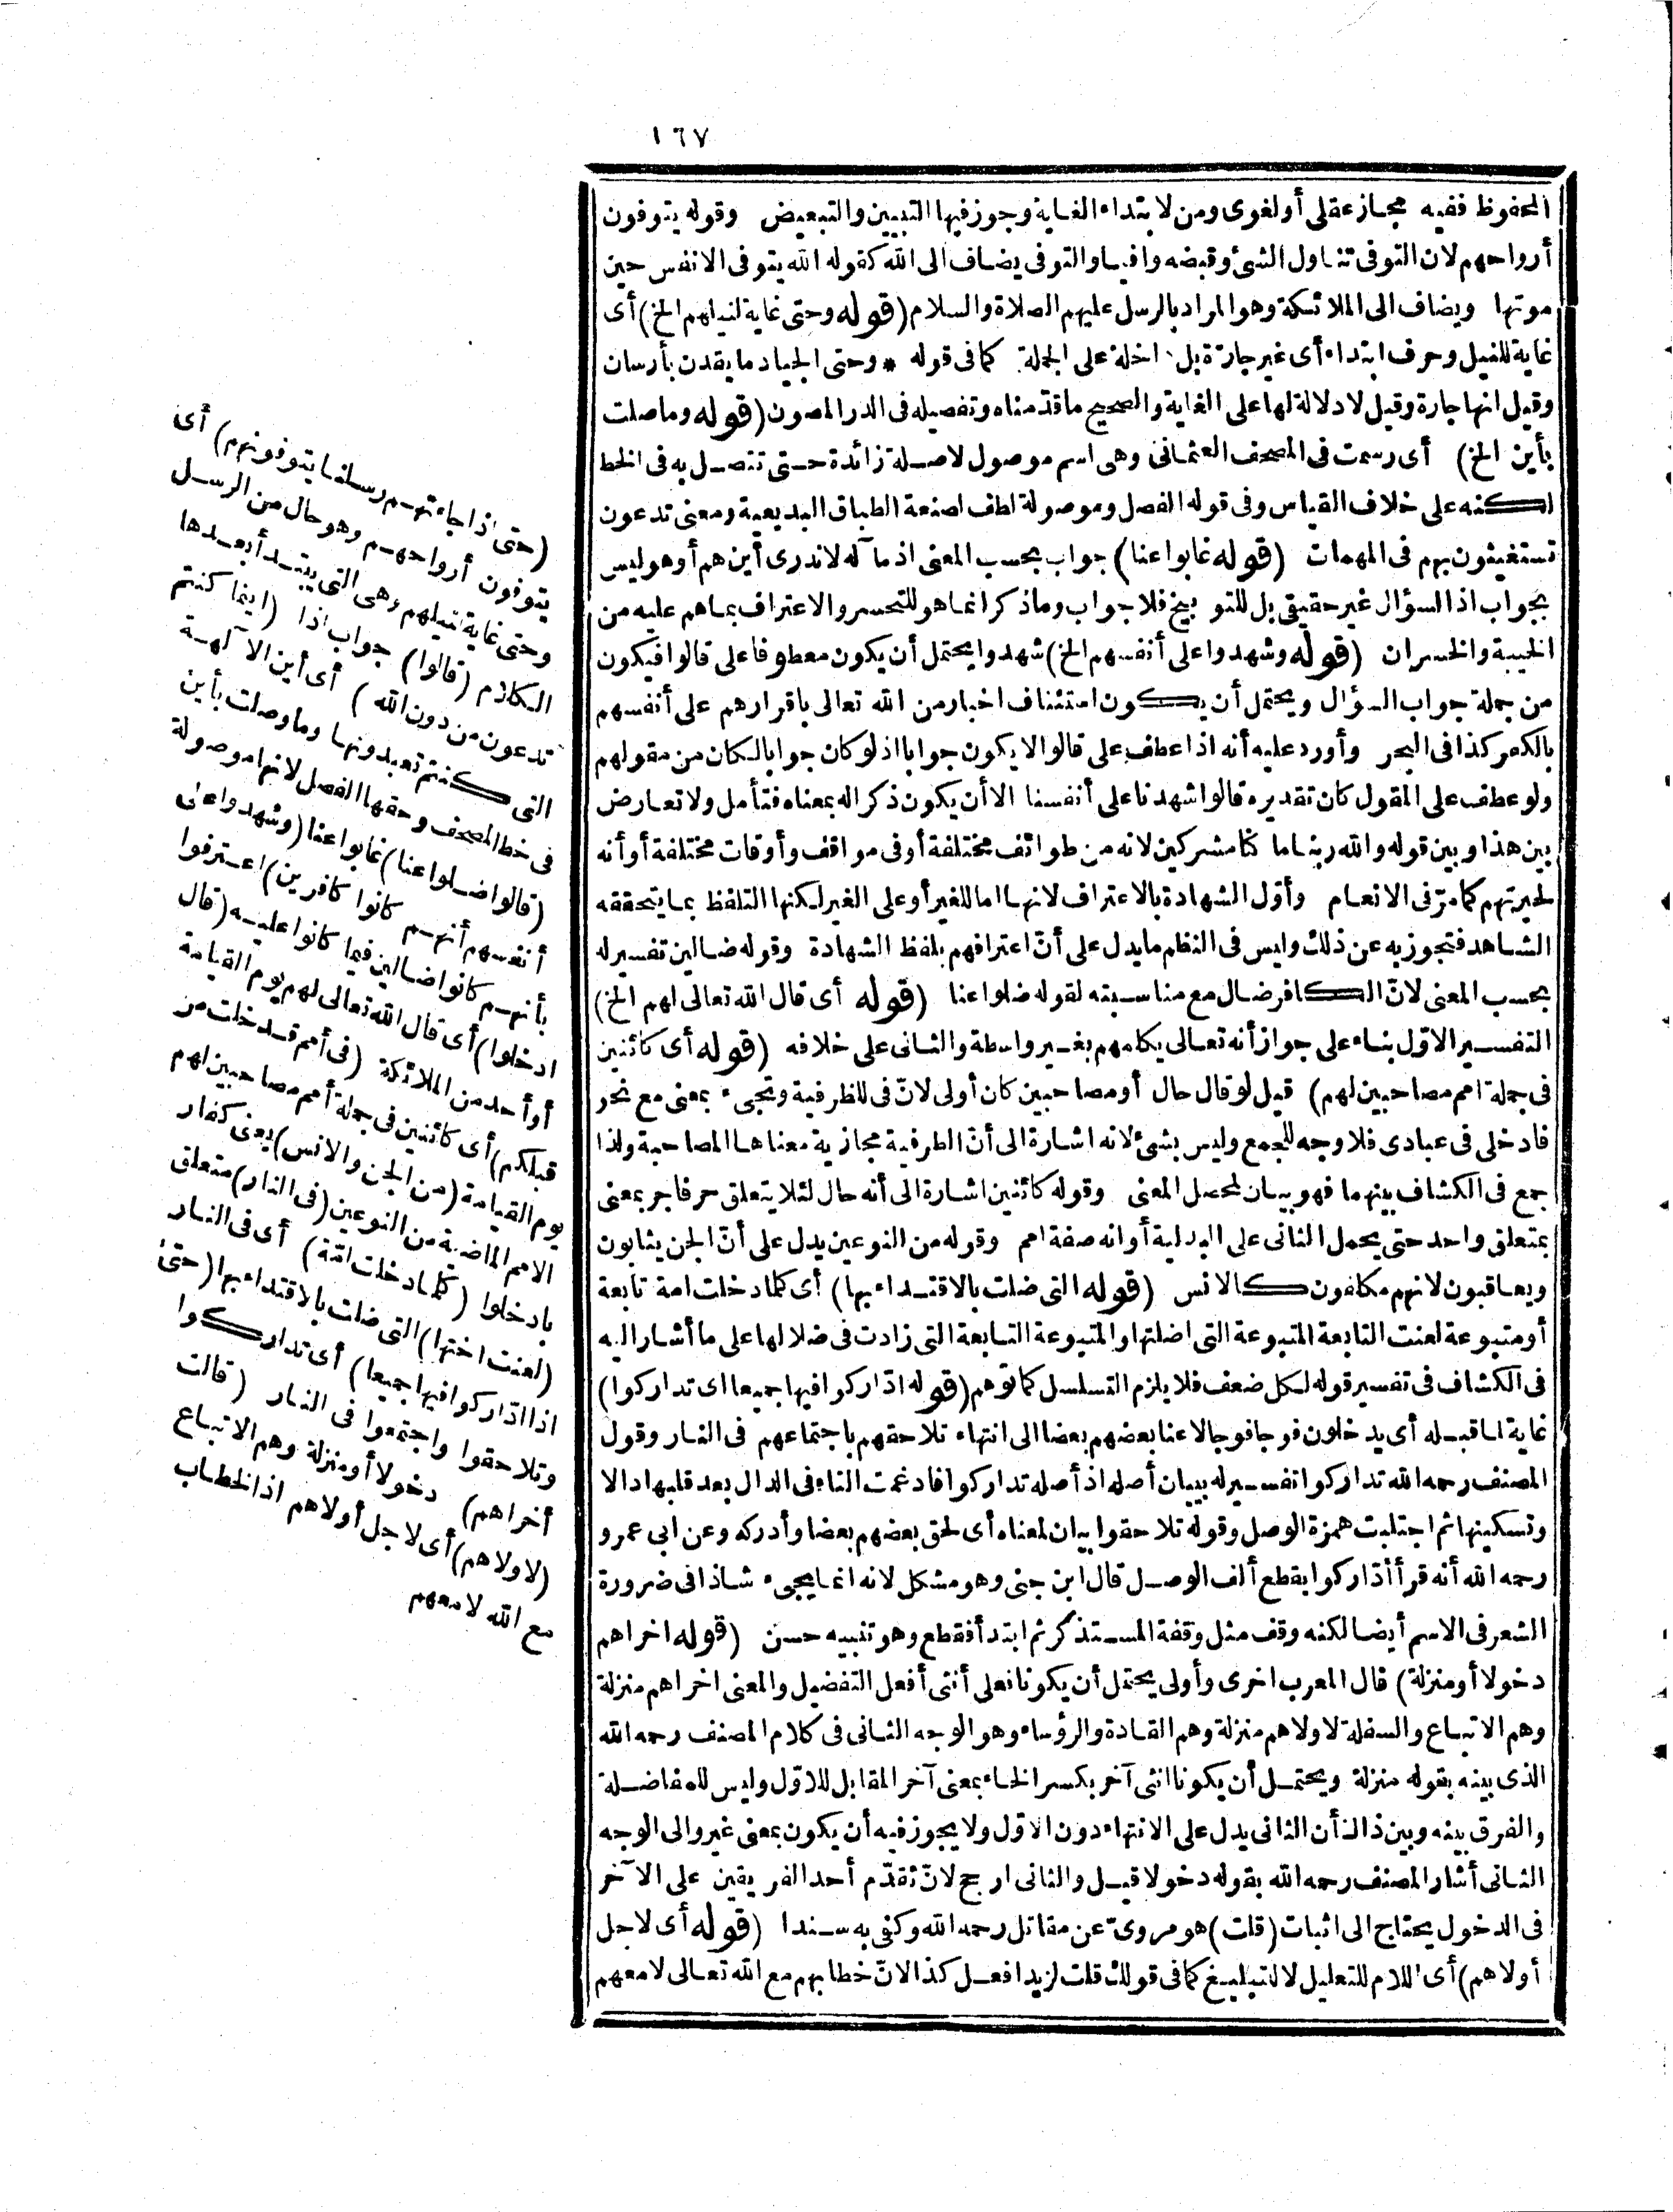 ١٦٧
المحفوظ ففيه مجاز عقلى أولغوى ومن لابتداء الغاية وجوز فيها التبيين والتبعيض وقوله يتوفون
أرواحهم لان التوفى تناول الشئ وقبضه وافيا والتوفى يضاف الى الله كقوله الله يتوفى الانفس حين
موتها ويضاف الى الملائكة وهو المراد بالرسل عليهم الصلاة والسلام (قوله وحتى غاية لنيلهم الخ) أى
غاية للنيل وحرف ابتداء أى غير جارّة بل داخلة على الجملة كما فى قوله * وحتى الجياد ما يقدن بأرسان
وقيل انها جارة وقيل لا دلالة لها على الغاية والصحيح ما قدّمناه وتفصيله فى الدر المصون (قوله وما صلت
بأين الخ) أى رسمت فى المصحف العثمانى وهى اسم موصول لا صلة زائدة حتى تتصل به فى الخط
لكنه على خلاف القياس وفى قوله الفصل وموصولة لطف لصنعة الطباق البديعية ومعنى تدعون
تستغيثون بهم فى المهمات (قوله غابوا عنا) جواب بحسب المعنى اذ مآله لا ندرى أين هم أو هو ليس
بجواب اذ السؤال غير حقيقى بل للتوبيخ فلا جواب وما ذكر انما هو للتحسر والاعتراف بما هم عليه من
الخيبة والخسران (قوله وشهدوا على أنفسهم الخ) شهدوا يحتمل أن يكون معطوفا على قالوا فيكون
من جملة جواب السؤال ويحتمل أن يكون استئناف اخبار من الله تعالى باقرارهم على أنفسهم
بالكفر كذا فى البحر وأورد عليه أنه اذا عطف على قالوا لا يكون جوابا اذ لو كان جوابا لكان من مقولهم
ولو عطف على المقول كان تقديره قالوا شهدنا على أنفسنا الا أن يكون ذكر اله بمعناه فتأمل ولا تعارض
بين هذا وبين قوله والله ربنا ما كنا مشركين لانه من طوائف مختلفة أو فى مواقف وأوقات مختلفة أو أنه
لحيرتهم كما مرّ فى الانعام وأوّل الشهادة بالاعتراف لانها اما للغير أو على الغير لكنها التلفظ بما يتحققه
الشاهد فتجوز به عن ذلك وليس فى النظم ما يدل على أنّ اعترافهم بلفظ الشهادة وقوله ضالين تفسير له
بحسب المعنى لانّ الكافر ضال مع مناسبته لقوله ضلوا عنا (قوله أى قال الله تعالى لهم الخ)
التفسير الاوّل بناء على جواز أنه تعالى يكلمهم بغير واسطة والثانى على خلافه (قوله أى كائنين
فى جملة امم مصاحبين لهم) قيل لو قال حال أو مصاحبين كان أولى لانّ فى للظرفية وتجىء بمعنى مع نحو
فادخلى فى عبادى فلا وجه للجمع وليس بشئ لانه اشارة الى أنّ الظرفية مجازية معناها المصاحبة ولذا
جمع فى الكشاف بينهما فهو بيان لمحصل المعنى وقوله كائنين اشارة الى أنه حال لئلا يتعلق حرفا جر بمعنى
بمتعلق واحد حتى يحمل الثانى على البدلية أو انه صفة امم وقوله من النوعين يدل على أنّ الجن يثابون
ويعاقبون لانهم مكلفون كالانس (قوله التى ضلت بالاقتداء بها) أى كلما دخلت امة تابعة
أو متبوعة لعنت التابعة المتبوعة التى اضلتها والمتبوعة التابعة التى زادت فى ضلالها على ما أشار اليه
فى الكشاف فى تفسير قوله لكل ضعف فلا يلزم التسلسل كما توهم (قوله ادّاركوا فيها جميعا اى تداركوا)
غاية لما قبله أى يدخلون فوجا فوجا لاعنا بعضهم بعضا الى انتهاء تلاحقهم باجتماعهم فى النار وقول
المصنف رحمه الله تداركوا تفسير له ببيان أصله اذ أصله تداركوا فادغمت التاء فى الدال بعد قلبها دالا
وتسكينها ثم اجتلبت همزة الوصل وقوله تلاحقوا بيان لمعناه أى لحق بعضهم بعضا وأدركه وعن ابى عمرو
رحمه الله أنه قرأ أدّاركوا بقطع ألف الوصل قال ابن جنى وهو مشكل لانه انما يجىء شاذا فى ضرورة
الشعر فى الاسم أيضا لكنه وقف مثل وقفة المستذكر ثم ابتدأ فقطع وهو تنبيه حسن (قوله اخراهم
دخولا أو منزلة) قال المعرب اخرى وأولى يحتمل أن يكونا فعلى أنثى أفعل التفضيل والمعنى اخراهم منزلة
وهم الاتباع والسفلة لاولاهم منزلة وهم القادة والرؤساء وهو الوجه الثانى فى كلام المصنف رحمه الله
الذى بينه بقوله منزلة ويحتمل أن يكونا انثى آخر بكسر الخاء بمعنى آخر المقابل للاوّل وليس للمفاضلة
والفرق بينه وبين ذاك أن الثانى يدل على الانتهاء دون الاوّل ولا يجوز فيه أن يكون بمعنى غير والى الوجه
الثانى أشار المصنف رحمه الله بقوله دخولا قيل والثانى ارجح لانّ تقدّم أحد الفريقين على الآخر
فى الدخول يحتاج الى اثبات (قلت) هو مروىّ عن مقاتل رحمه الله وكفى به سندا (قوله أى لاجل
أولاهم) أى اللام للتعليل لا للتبليغ كما فى قولك قلت لزيد افعل كذا لانّ خطابهم مع الله تعالى لا معهم
(حتى اذا جاءتهم رسلنا يتوفونهم) أى
يتوفون أرواحهم وهو حال من الرسل
وحتى غاية لنيلهم وهى التى يبتدأ بعدها
الكلام (قالوا) جواب اذا (اينما كنتم
تدعون من دون الله) أى أين الآلهة
التى كنتم تعبدونها وما وصلت بأين
فى خط المصحف وحقها الفصل لانها موصولة
(قالوا ضلوا عنا) غابوا عنا (وشهدوا على
أنفسهم أنهم كانوا كافرين) اعترفوا
بأنهم كانوا ضالين فيما كانوا عليه (قال
ادخلوا) أى قال الله تعالى لهم يوم القيامة
أو أحد من الملائكة (فى أمم قد خلت من
قبلكم) أى كائنين فى جملة أمم مصاحبين لهم
يوم القيامة (من الجن والانس) يعنى كفار
الامم الماضية من النوعين (فى النار) متعلق
بادخلوا (كلما دخلت امّة) أى فى النار
(لعنت اختها) التى ضلت بالاقتداء بها (حتى
اذا ادّاركوا فيها جميعا) أى تداركوا
وتلاحقوا واجتمعوا فى النار (قالت
أخراهم) دخولا أو منزلة وهم الاتباع
(لاولاهم) أى لاجل أولاهم اذ الخطاب
مع الله لا معهم